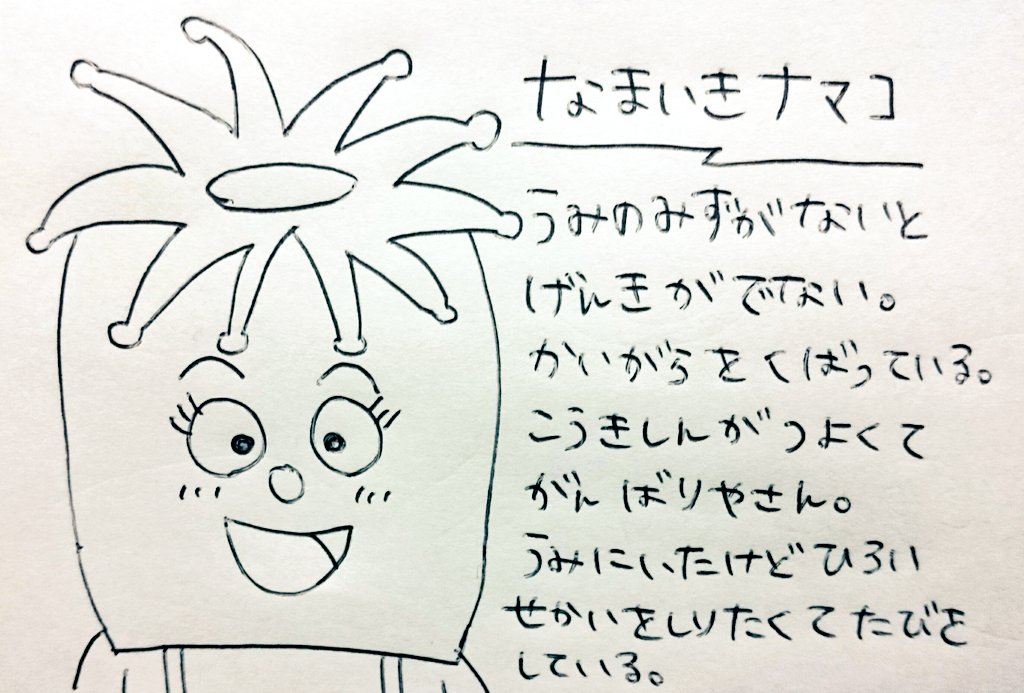 なまいきナマコ
うみのみずがないと
げんきがでない。
かいがらをくばっている。
こうきしんがつよくて
がんばりやさん。
うみにいたけどひろい
せかいをしりたくてたびを
している。